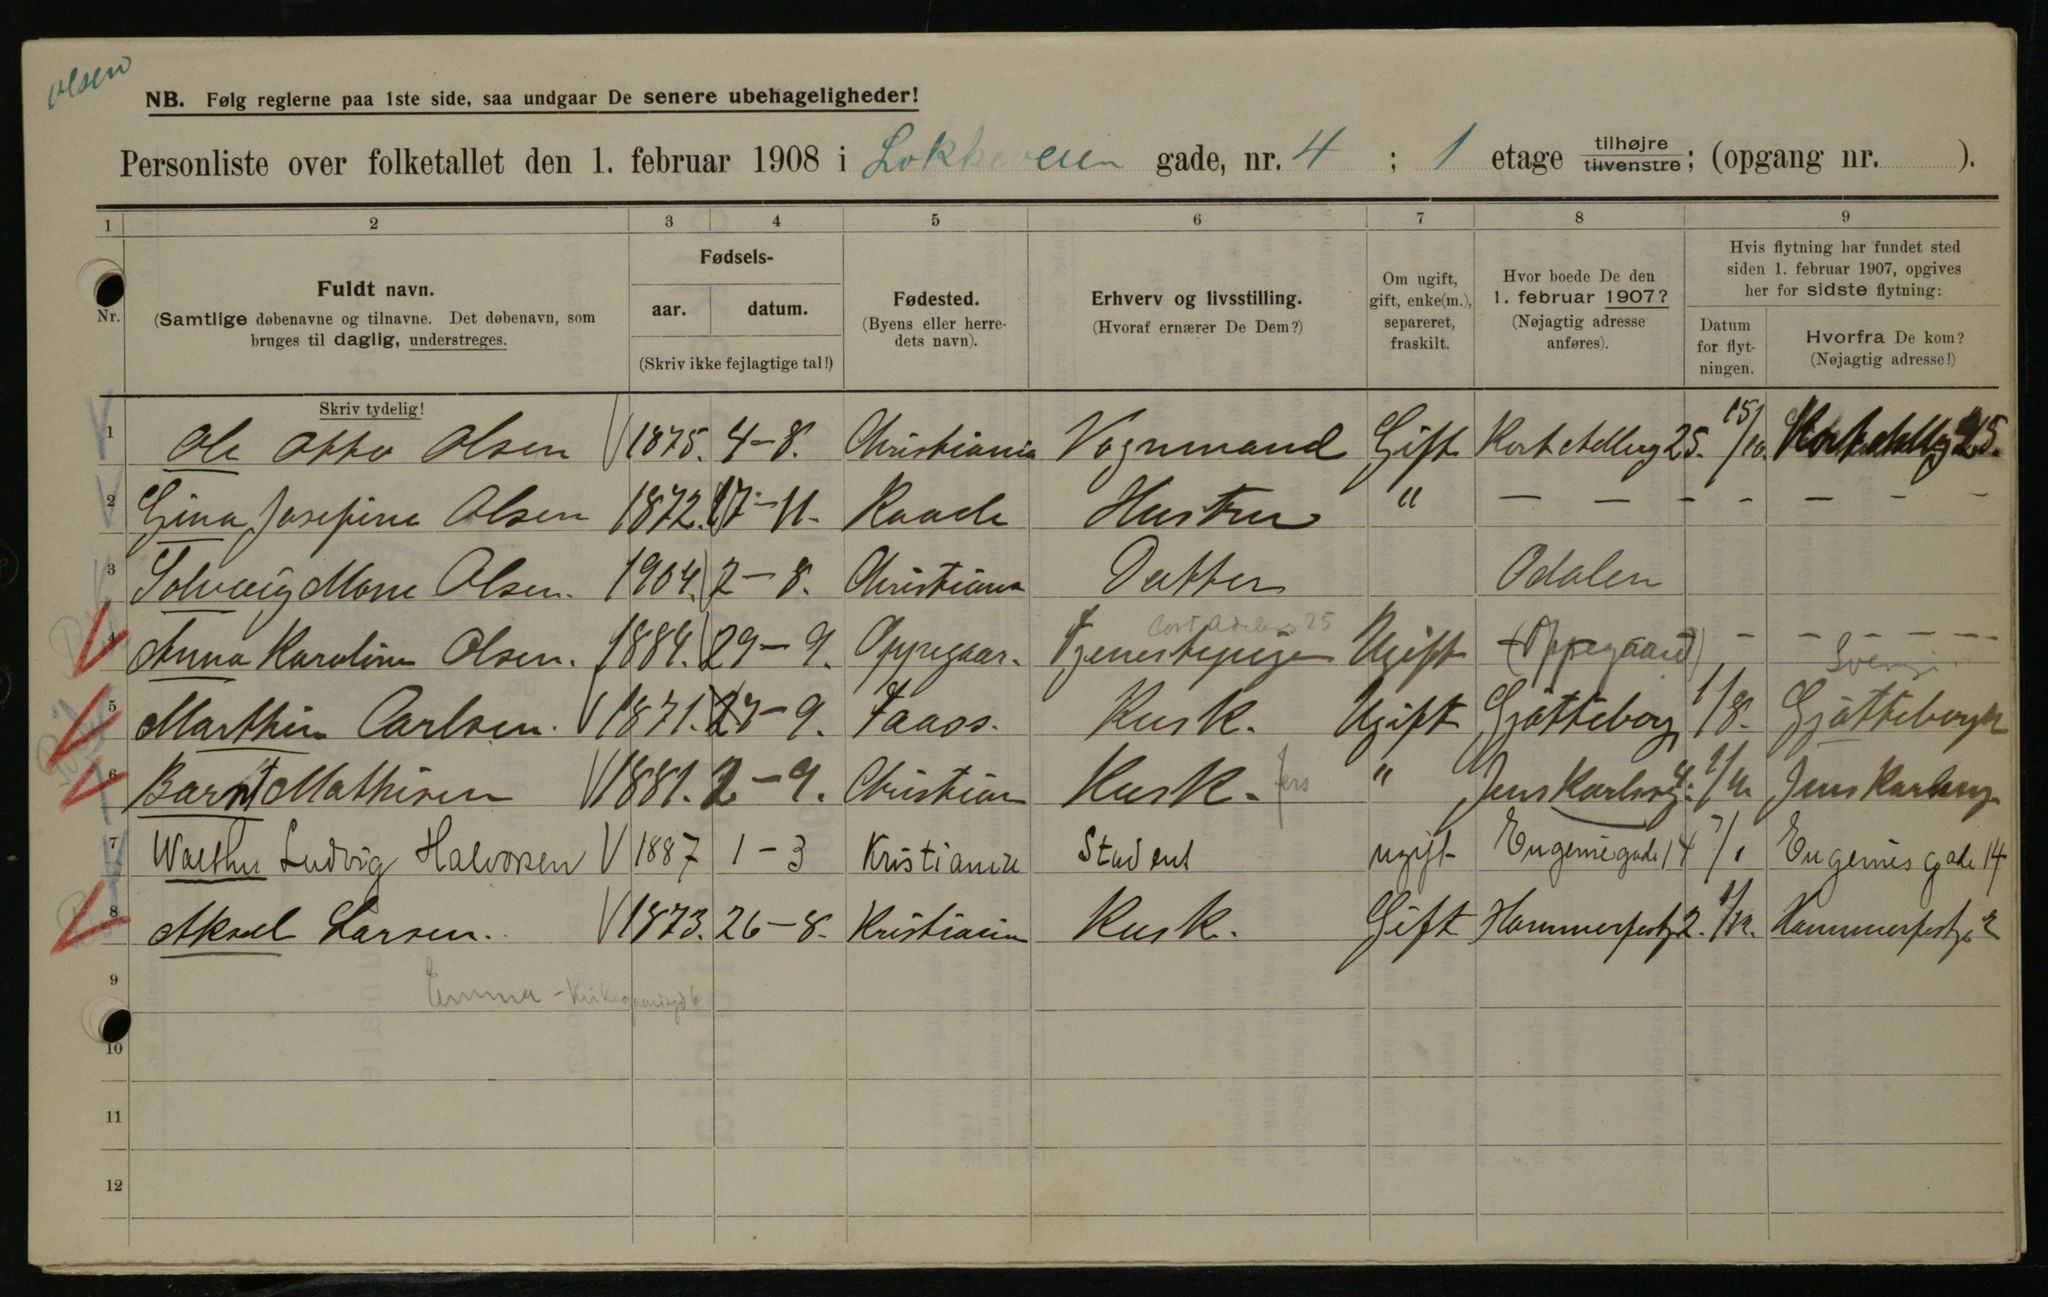 Olsen
NB. Følg reglerne paa 1ste side, saa undgaar De senere ubehageligheder!
Personliste over folketallet den 1. februar 1908 i Løkkeveien gade, nr. 4 ; 1 etage tilhøjre tilvenstre; (opgang nr. ).
1 2 3 4 5 6 7 8 9
Nr.
Fuldt navn.
(Samtlige døbenavne og tilnavne. Det døbenavn, som
bruges til daglig, understreges.
Skriv tydelig!
Fødsels-
aar. datum.
(Skriv ikke fejlagtige tal!)
Fødested.
(Byens eller herre-
dets navn).
Erhverv og livsstilling.
(Hvoraf ernærer De Dem?)
Om ugift,
gift, enke(m.),
separeret,
fraskilt.
Hvor boede De den
1. februar 1907?
(Nøjagtig adresse
anføres).
Hvis flytning har fundet sted
siden 1. februar 1907, opgives
her for sidste flytning:
Datum
for flyt-
ningen.
Hvorfra De kom?
(Nøjagtig adresse!)
1 Ole Otto Olsen 1875. 4-8. Christiania Vognmand Gift Kort Adlerg 25. 15/10. Kort Adlerg 25.
2 Gina Josefine Olsen 1872. 17-11. Raade Hustru " — — - - — - -
3 Solveig Mone Olsen. 1904. 2-8. Christiania Datter Odalen
Cort Adelers 25
4 Anna Karoline Olsen. 1884. 29-9. Oppegaar. Tjenestepige Ugift (Oppegaard) - - - - - -
Sverige
5 Marthin Carlsen. 1871. 27-9. Faaos. Kusk. Ugift Gjøtteborg 1/8. Gjøtteborg
6 Barnt Mathisen 1881. 2-9. Christian Kusk. " Jens Karlsvg 4. Jens Karlsvg
7 Walther Ludvig Halvorsen 1887 1-3 Kristiania Student ugift Eugeniegade 14 7/1 Eugenies gade 14
8 Aksel Larsen. 1873. 26-8. Kristiania Kusk. Gift Hammerfestg 2. 1/12. Hammerfestg. 2
9 Emma - Kirkegaardsgd 6
10
11
12